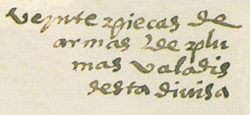 veynte pieças de
armas de plu
mas valadis
desta divisa